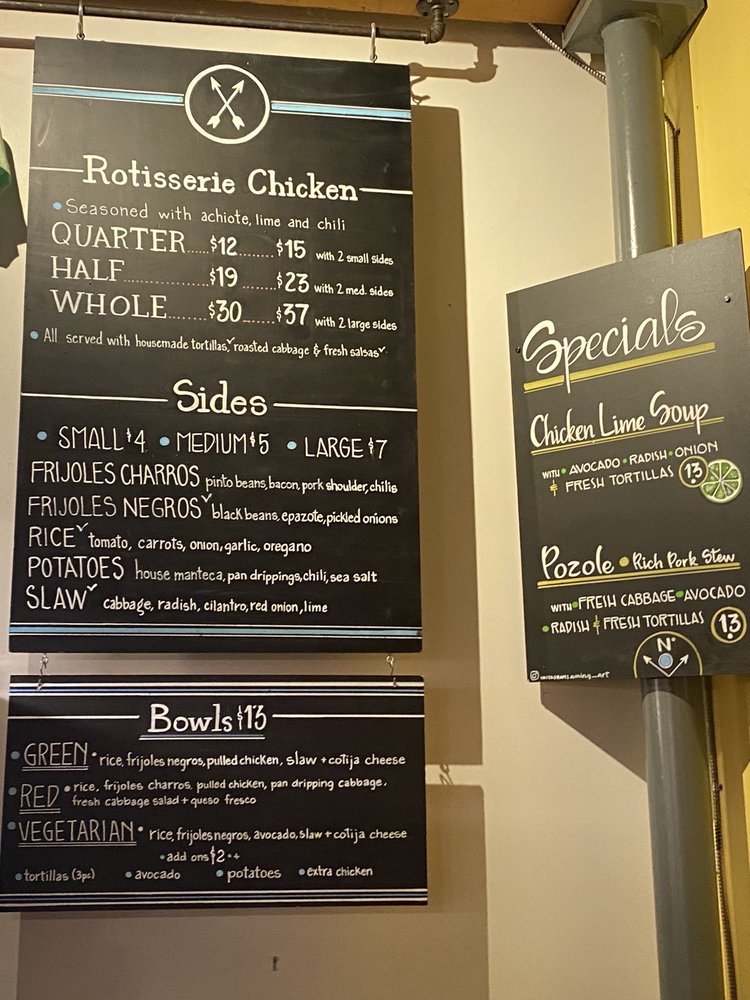 Rotisserie Chicken
•Seasoned with achiote, lime and chili
QUARTER.....$12.......$15 with 2 small sides
HALF.................$19........$23 with 2 med. sides
WHOLE........$30......$37 with 2 large sides
• All served with housemade tortillas✓, roasted cabbage & fresh salsas✓
Sides
• SMALL $4 • MEDIUM $5 • LARGE $7
FRIJOLES CHARROS pinto beans, bacon, pork shoulder, chilis
FRIJOLES NEGROS✓ black beans, epazote, pickled onions
RICE✓ tomato, carrots, onion, garlic, oregano
POTATOES house manteca, pan drippings, chili, sea salt
SLAW✓ cabbage, radish, cilantro, red onion, lime
Bowls $13
• GREEN • rice, frijoles negros, pulled chicken, slaw + cotija cheese
• RED • rice, frijoles charros, pulled chicken, pan dripping cabbage,
fresh cabbage salad + queso fresco
• VEGETARIAN • rice, frijoles negros, avocado, slaw + cotija cheese
• add ons $2 •+
• tortillas (3pc) • avocado • potatoes • extra chicken
Specials
Chicken Lime Soup
WITH • AVOCADO • RADISH • ONION
& FRESH TORTILLAS 13
Pozole • Rich Pork Stew
WITH • FRESH CABBAGE • AVOCADO
• RADISH & FRESH TORTILLAS 13
N°